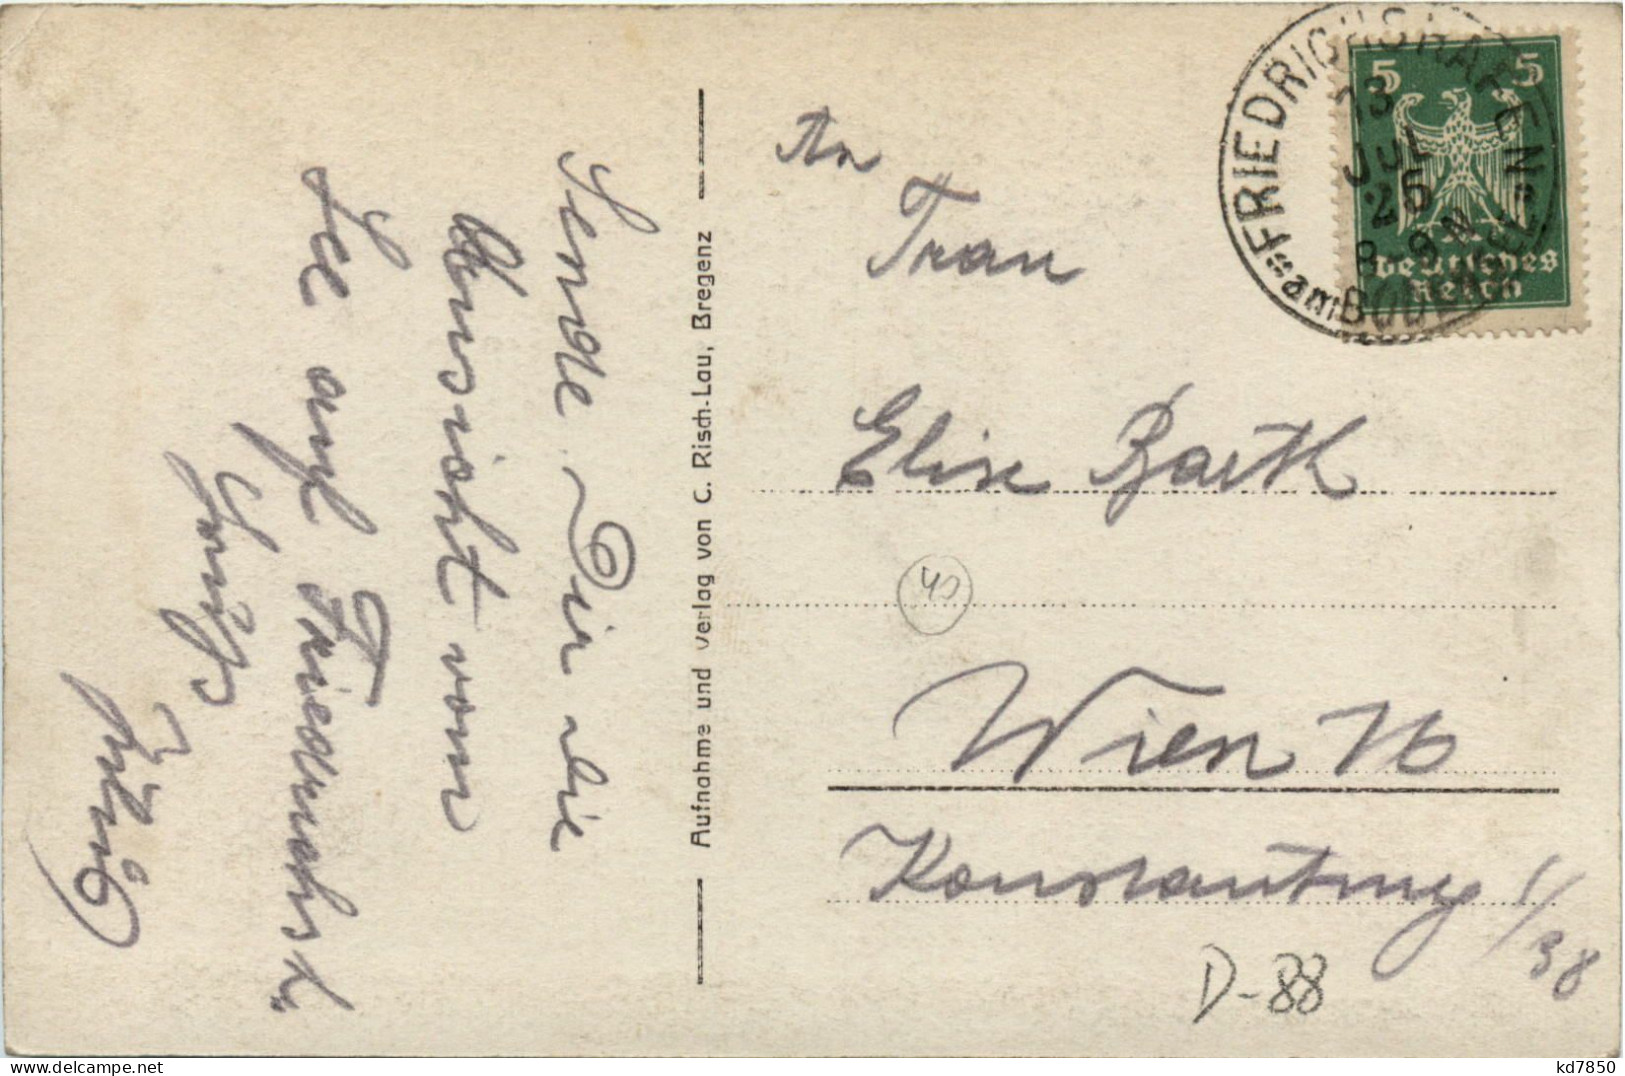 Sende Dir die
Aussicht vom
See auf Friedrichsh.
Gruß
Aufnahme und Verlag von C. Risch-Lau, Bregenz
An
Frau
Elise Barth
40
Wien 16
Konstanting 1/38
D-88
FRIEDRICHSHAFEN
am BODENSEE
13
JUL
25
8-9 N
5 5
Deutsches
Reich
kd7850